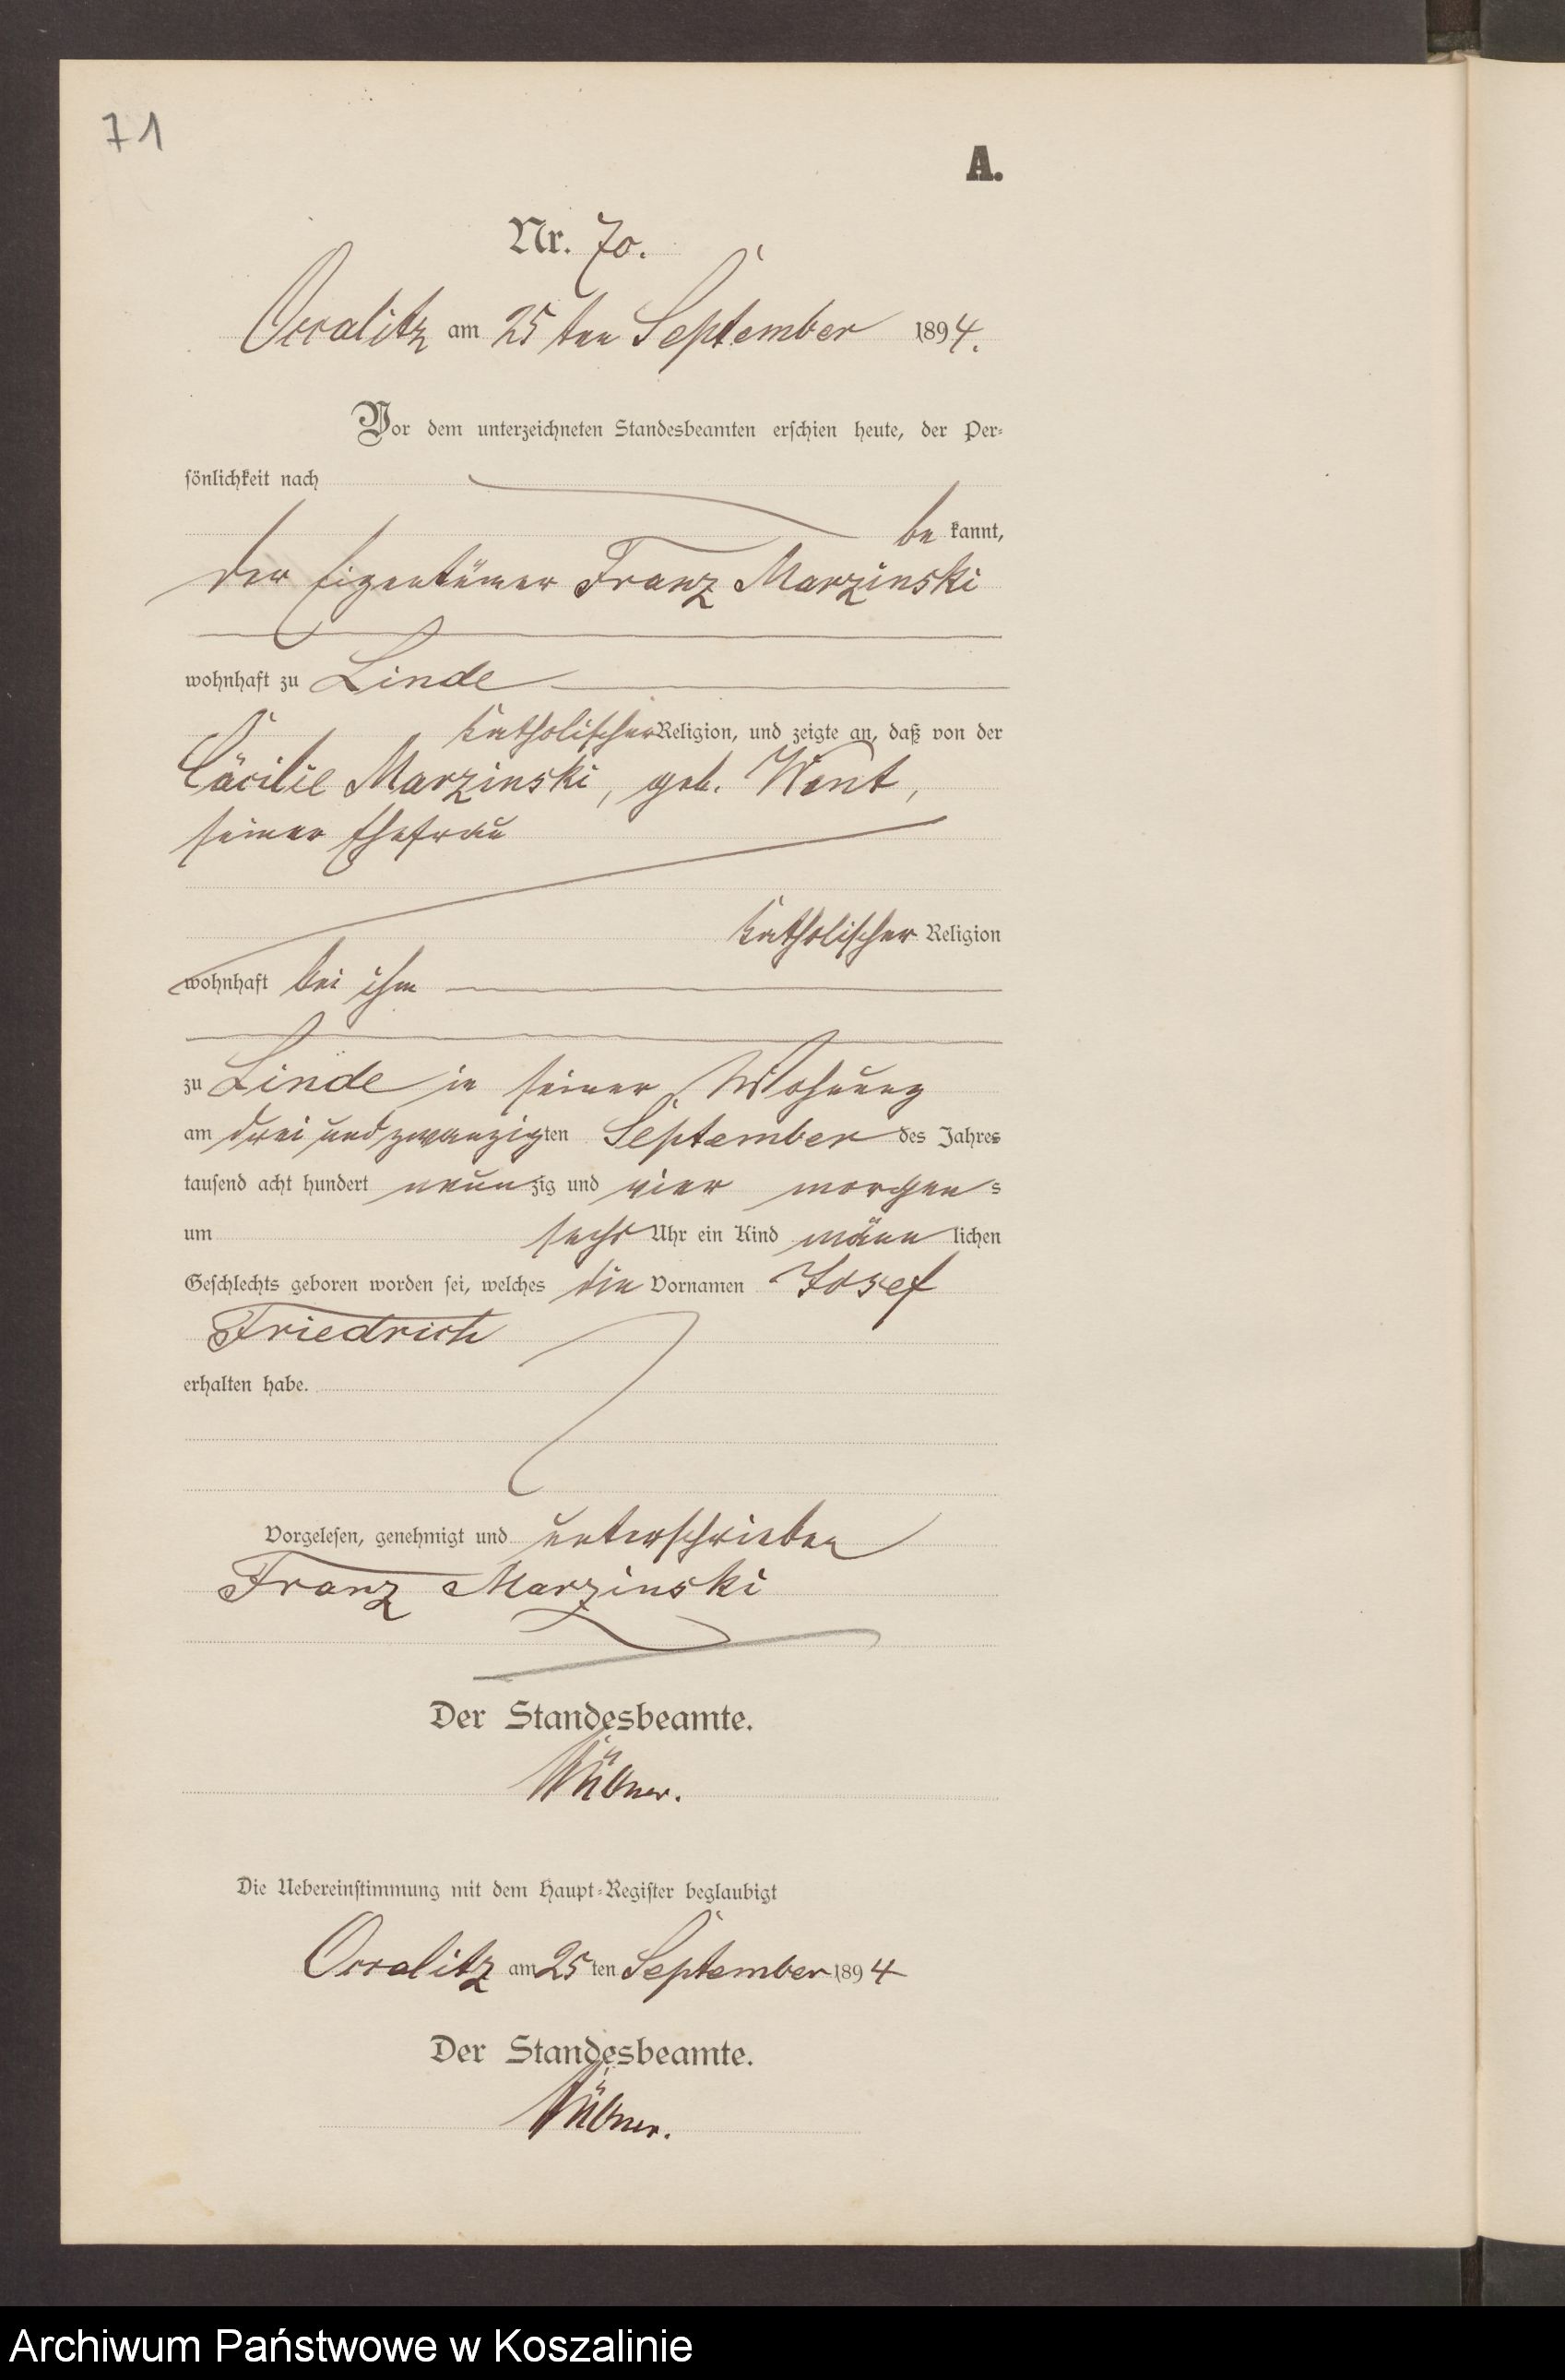 71
A.
Nr. 70.
Ossalitz am 25ten September 1894.
Vor dem unterzeichneten Standesbeamten erschien heute, der Per-
sönlichkeit nach
be kannt,
der Eigentümer Franz Marzinski
wohnhaft zu Linde
katholischer Religion, und zeigte an, daß von der
Cäcilie Marzinski, geb. Went,
seiner Ehefrau
katholischer Religion
wohnhaft bei ihm
zu Linde in seiner Wohnung
am drei und zwanzigten September des Jahres
tausend acht hundert neunzig und vier morgens
um sechs Uhr ein Kind männlichen
Geschlechts geboren worden sei, welches die Vornamen Josef
Friedrich
erhalten habe.
Vorgelesen, genehmigt und unterschrieben
Franz Marzinski
Der Standesbeamte.
Die Uebereinstimmung mit dem Haupt-Register beglaubigt
Ossalitz am 25ten September 1894
Der Standesbeamte.
Archiwum Państwowe w Koszalinie